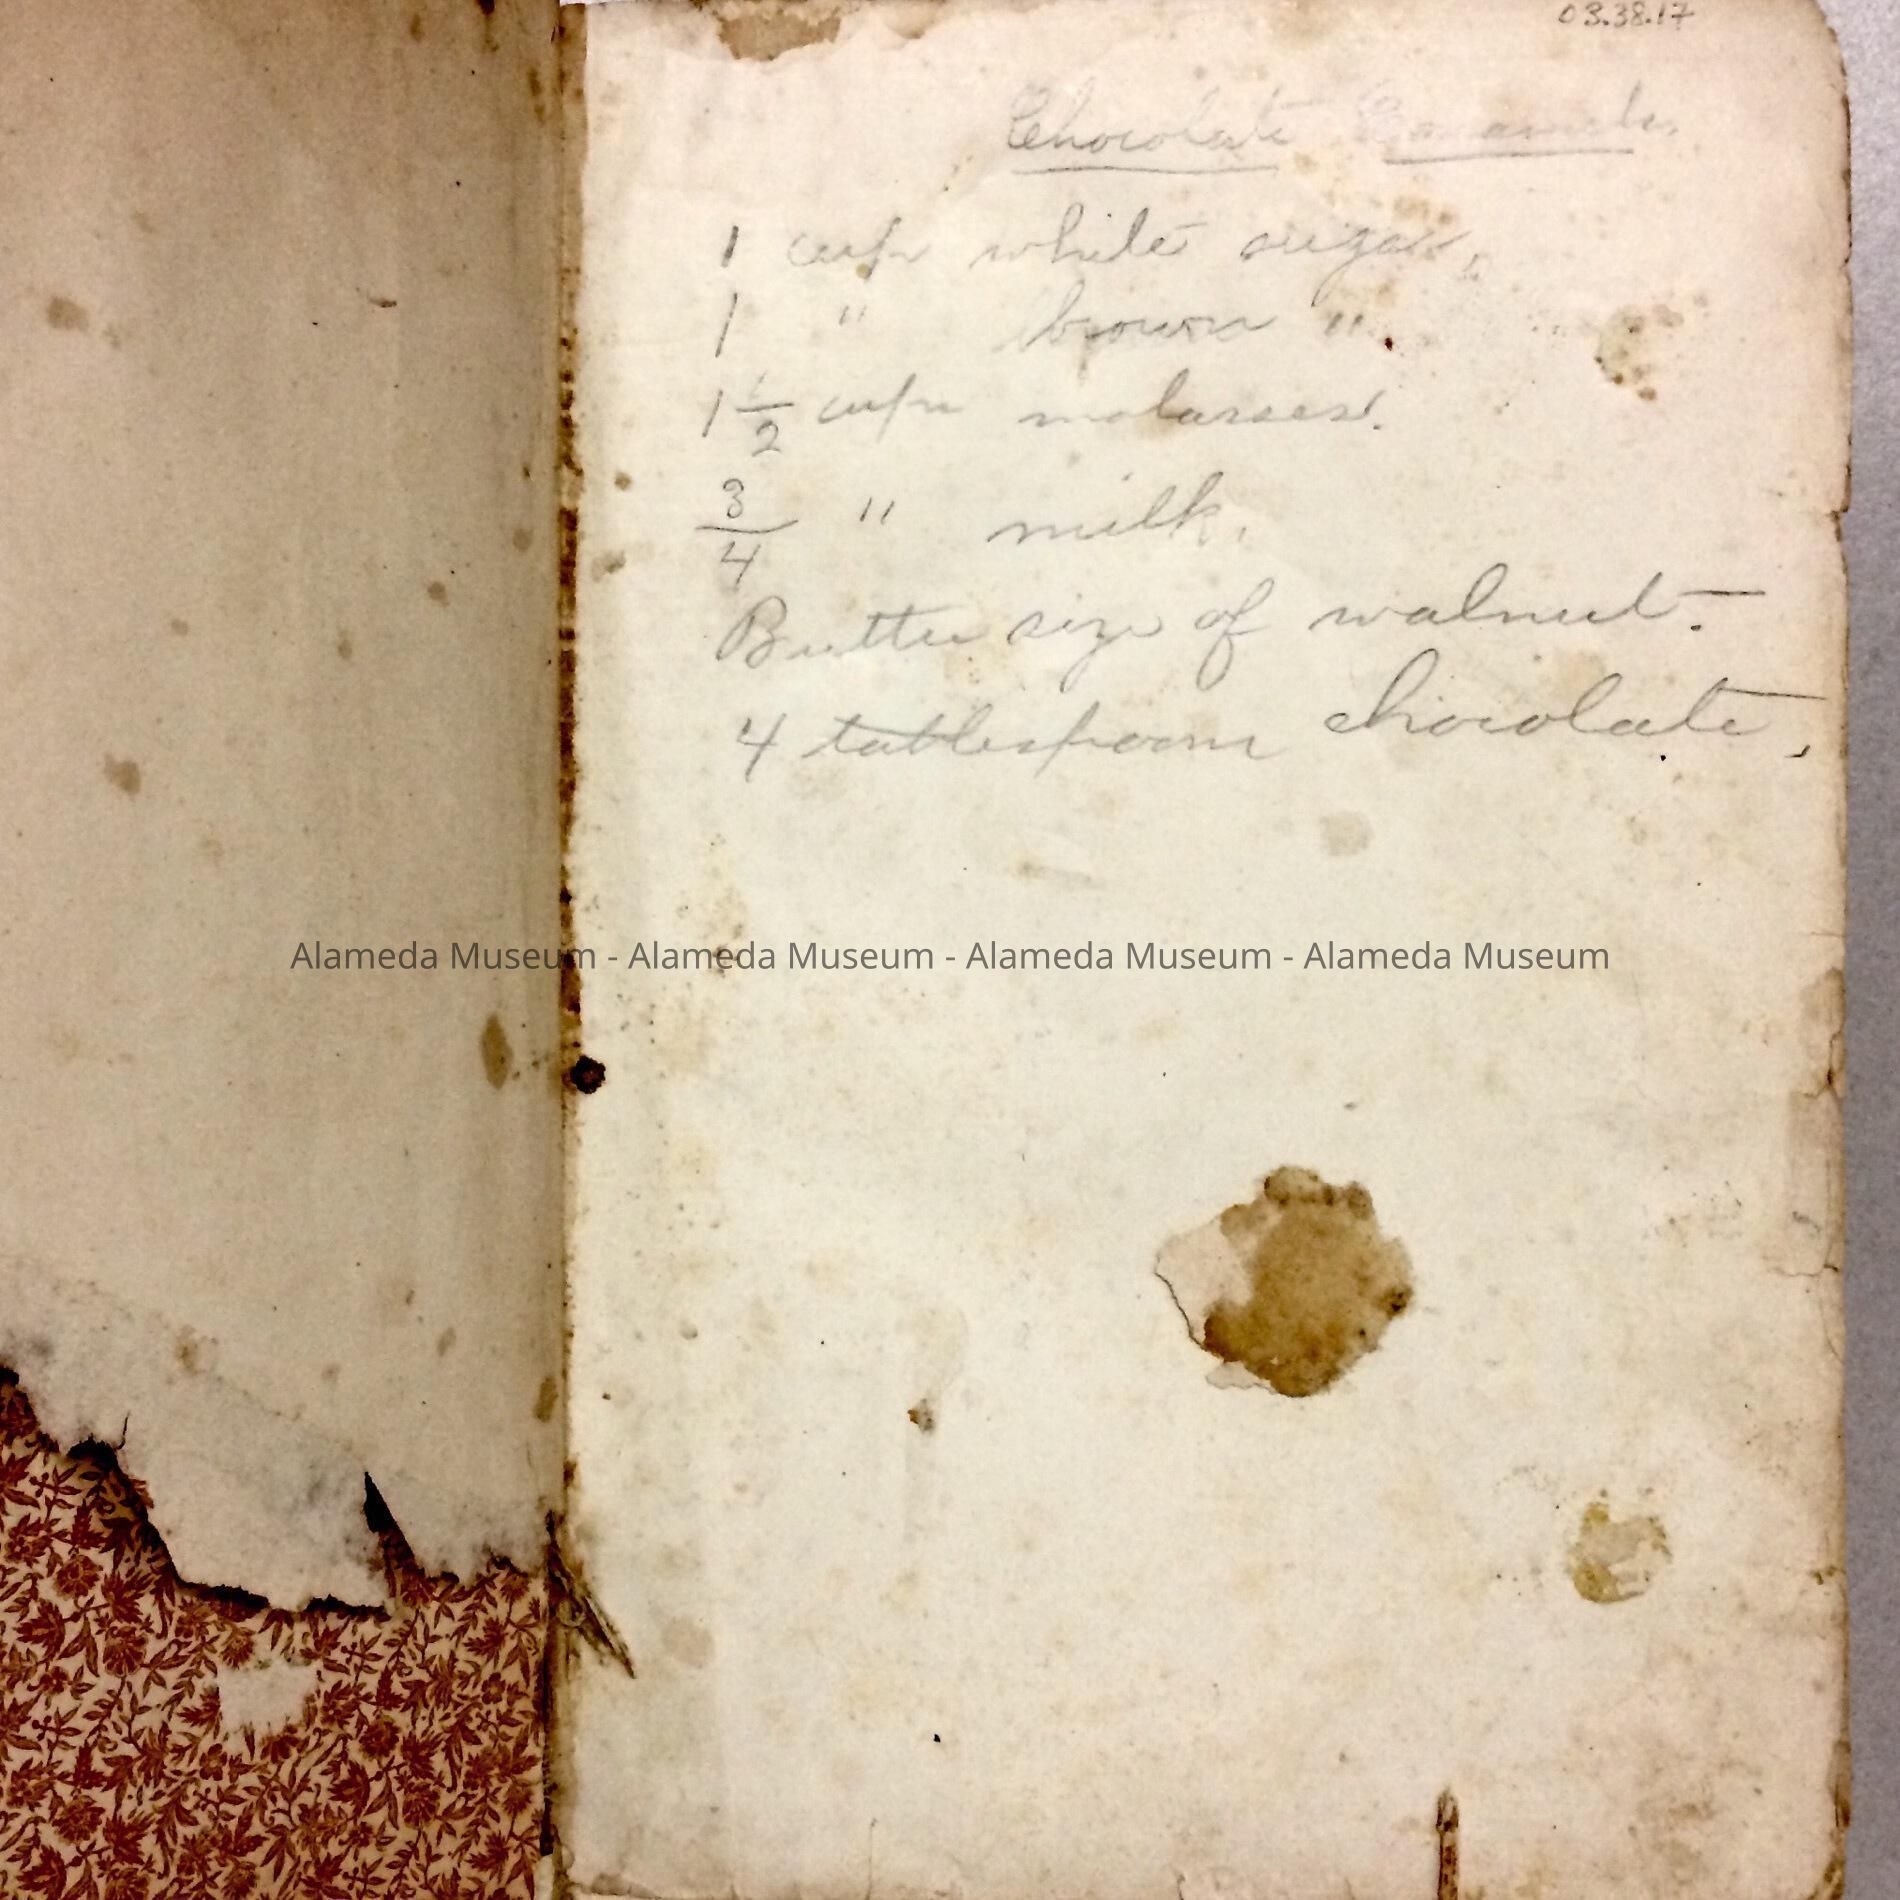 03.38.17
Chocolate Caramels
1 cup white sugar,
1 " brown "
1 1/2 cup molasses.
3/4 " milk.
Butter size of walnut.
4 tablespoon chocolate.
Alameda Museum - Alameda Museum - Alameda Museum - Alameda Museum